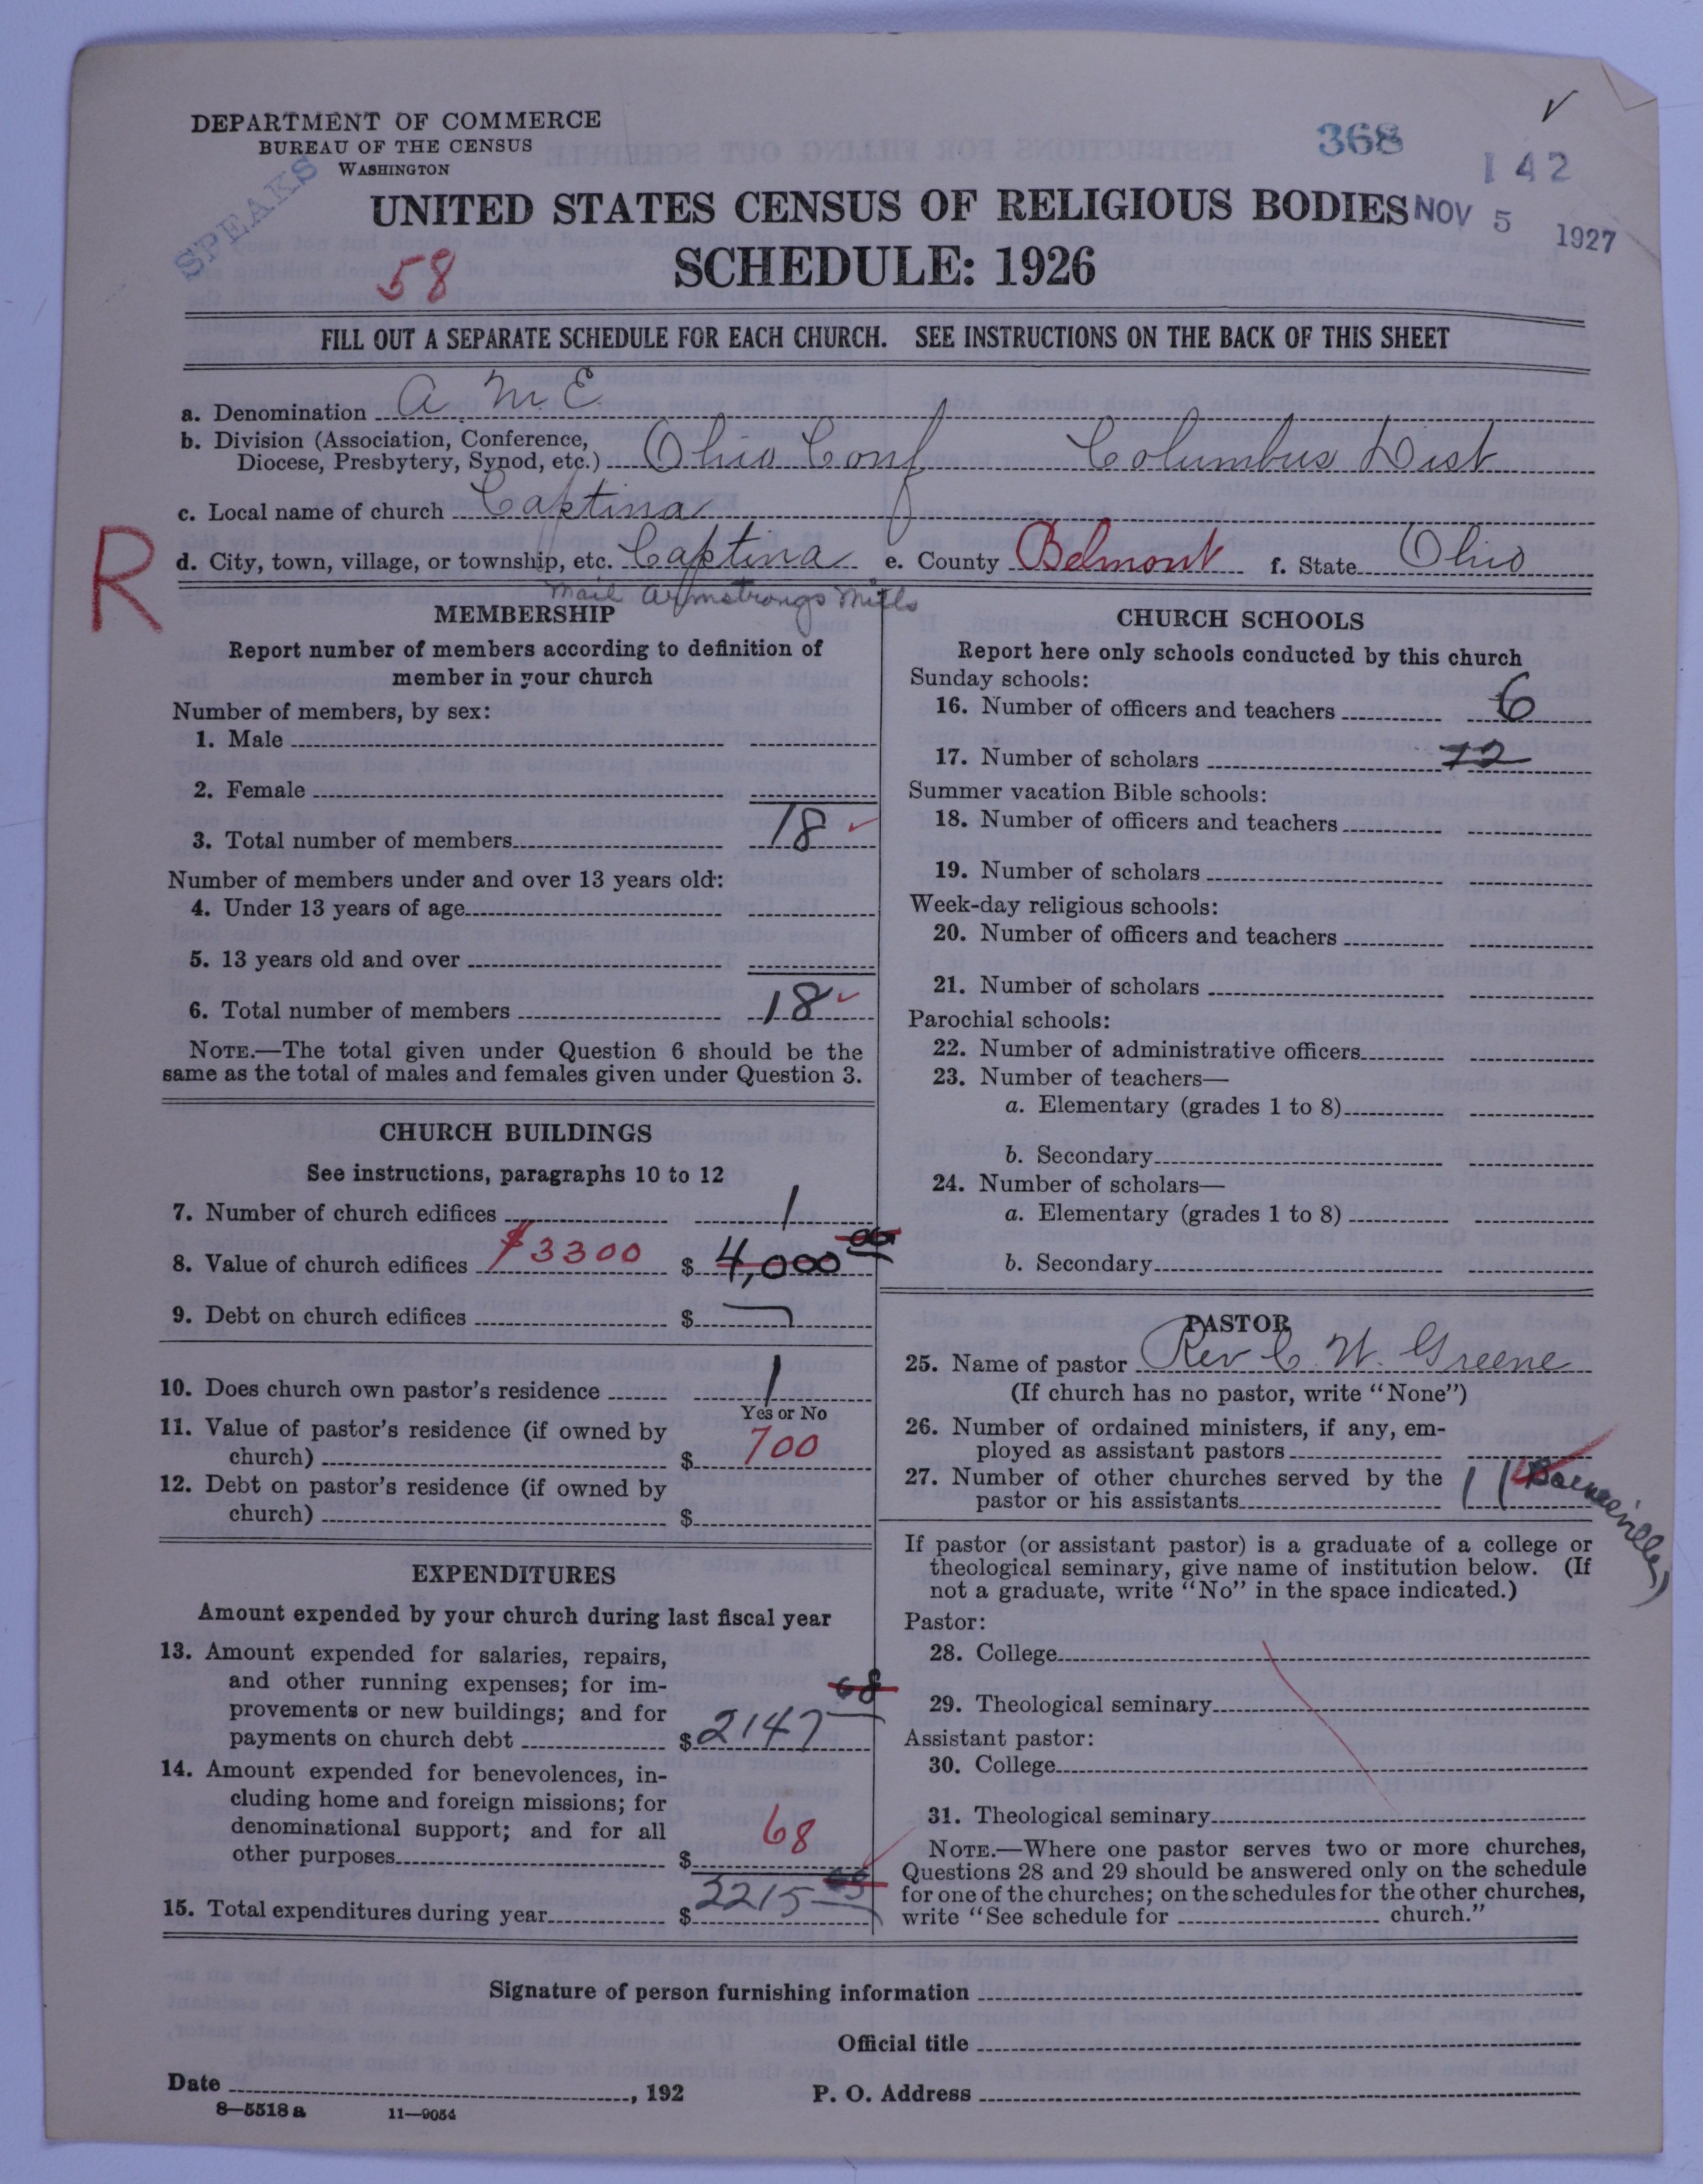 DEPARTMENT OF COMMERCE
BUREAU OF THE CENSUS
WASHINGTON
SPEAKS
368
142
NOV 5 1927
UNITED STATES CENSUS OF RELIGIOUS BODIES
SCHEDULE: 1926
58
FILL OUT A SEPARATE SCHEDULE FOR EACH CHURCH. SEE INSTRUCTIONS ON THE BACK OF THIS SHEET
a. Denomination A M E
b. Division (Association, Conference,
Diocese, Presbytery, Synod, etc.) Ohio Conf Columbus Dist
c. Local name of church Captina
R
d. City, town, village, or township, etc. Captina e. County Belmont f. State Ohio
Mail Armstrongs Mills
MEMBERSHIP
Report number of members according to definition of
member in your church
Number of members, by sex:
1. Male
2. Female
3. Total number of members 18
Number of members under and over 13 years old:
4. Under 13 years of age
5. 13 years old and over
6. Total number of members 18
NOTE.—The total given under Question 6 should be the
same as the total of males and females given under Question 3.
CHURCH BUILDINGS
See instructions, paragraphs 10 to 12
7. Number of church edifices 1
8. Value of church edifices $3300 $ 4,000 00
9. Debt on church edifices $
10. Does church own pastor's residence 1
Yes or No
11. Value of pastor's residence (if owned by
church) $ 700
12. Debt on pastor's residence (if owned by
church) $
EXPENDITURES
Amount expended by your church during last fiscal year
13. Amount expended for salaries, repairs,
and other running expenses; for im-
provements or new buildings; and for
payments on church debt $ 2147 68
14. Amount expended for benevolences, in-
cluding home and foreign missions; for
denominational support; and for all
other purposes $ 68
15. Total expenditures during year $ 2215
CHURCH SCHOOLS
Report here only schools conducted by this church
Sunday schools:
16. Number of officers and teachers 6
17. Number of scholars 72
Summer vacation Bible schools:
18. Number of officers and teachers
19. Number of scholars
Week-day religious schools:
20. Number of officers and teachers
21. Number of scholars
Parochial schools:
22. Number of administrative officers
23. Number of teachers—
a. Elementary (grades 1 to 8)
b. Secondary
24. Number of scholars—
a. Elementary (grades 1 to 8)
b. Secondary
PASTOR
25. Name of pastor Rev C. W. Greene
(If church has no pastor, write "None")
26. Number of ordained ministers, if any, em-
ployed as assistant pastors
27. Number of other churches served by the
pastor or his assistants 1
If pastor (or assistant pastor) is a graduate of a college or
theological seminary, give name of institution below. (If
not a graduate, write "No" in the space indicated.)
Pastor:
28. College
29. Theological seminary
Assistant pastor:
30. College
31. Theological seminary
NOTE.—Where one pastor serves two or more churches,
Questions 28 and 29 should be answered only on the schedule
for one of the churches; on the schedules for the other churches,
write "See schedule for church."
Signature of person furnishing information
Official title
Date , 192 P. O. Address
8—5518 a 11—9054